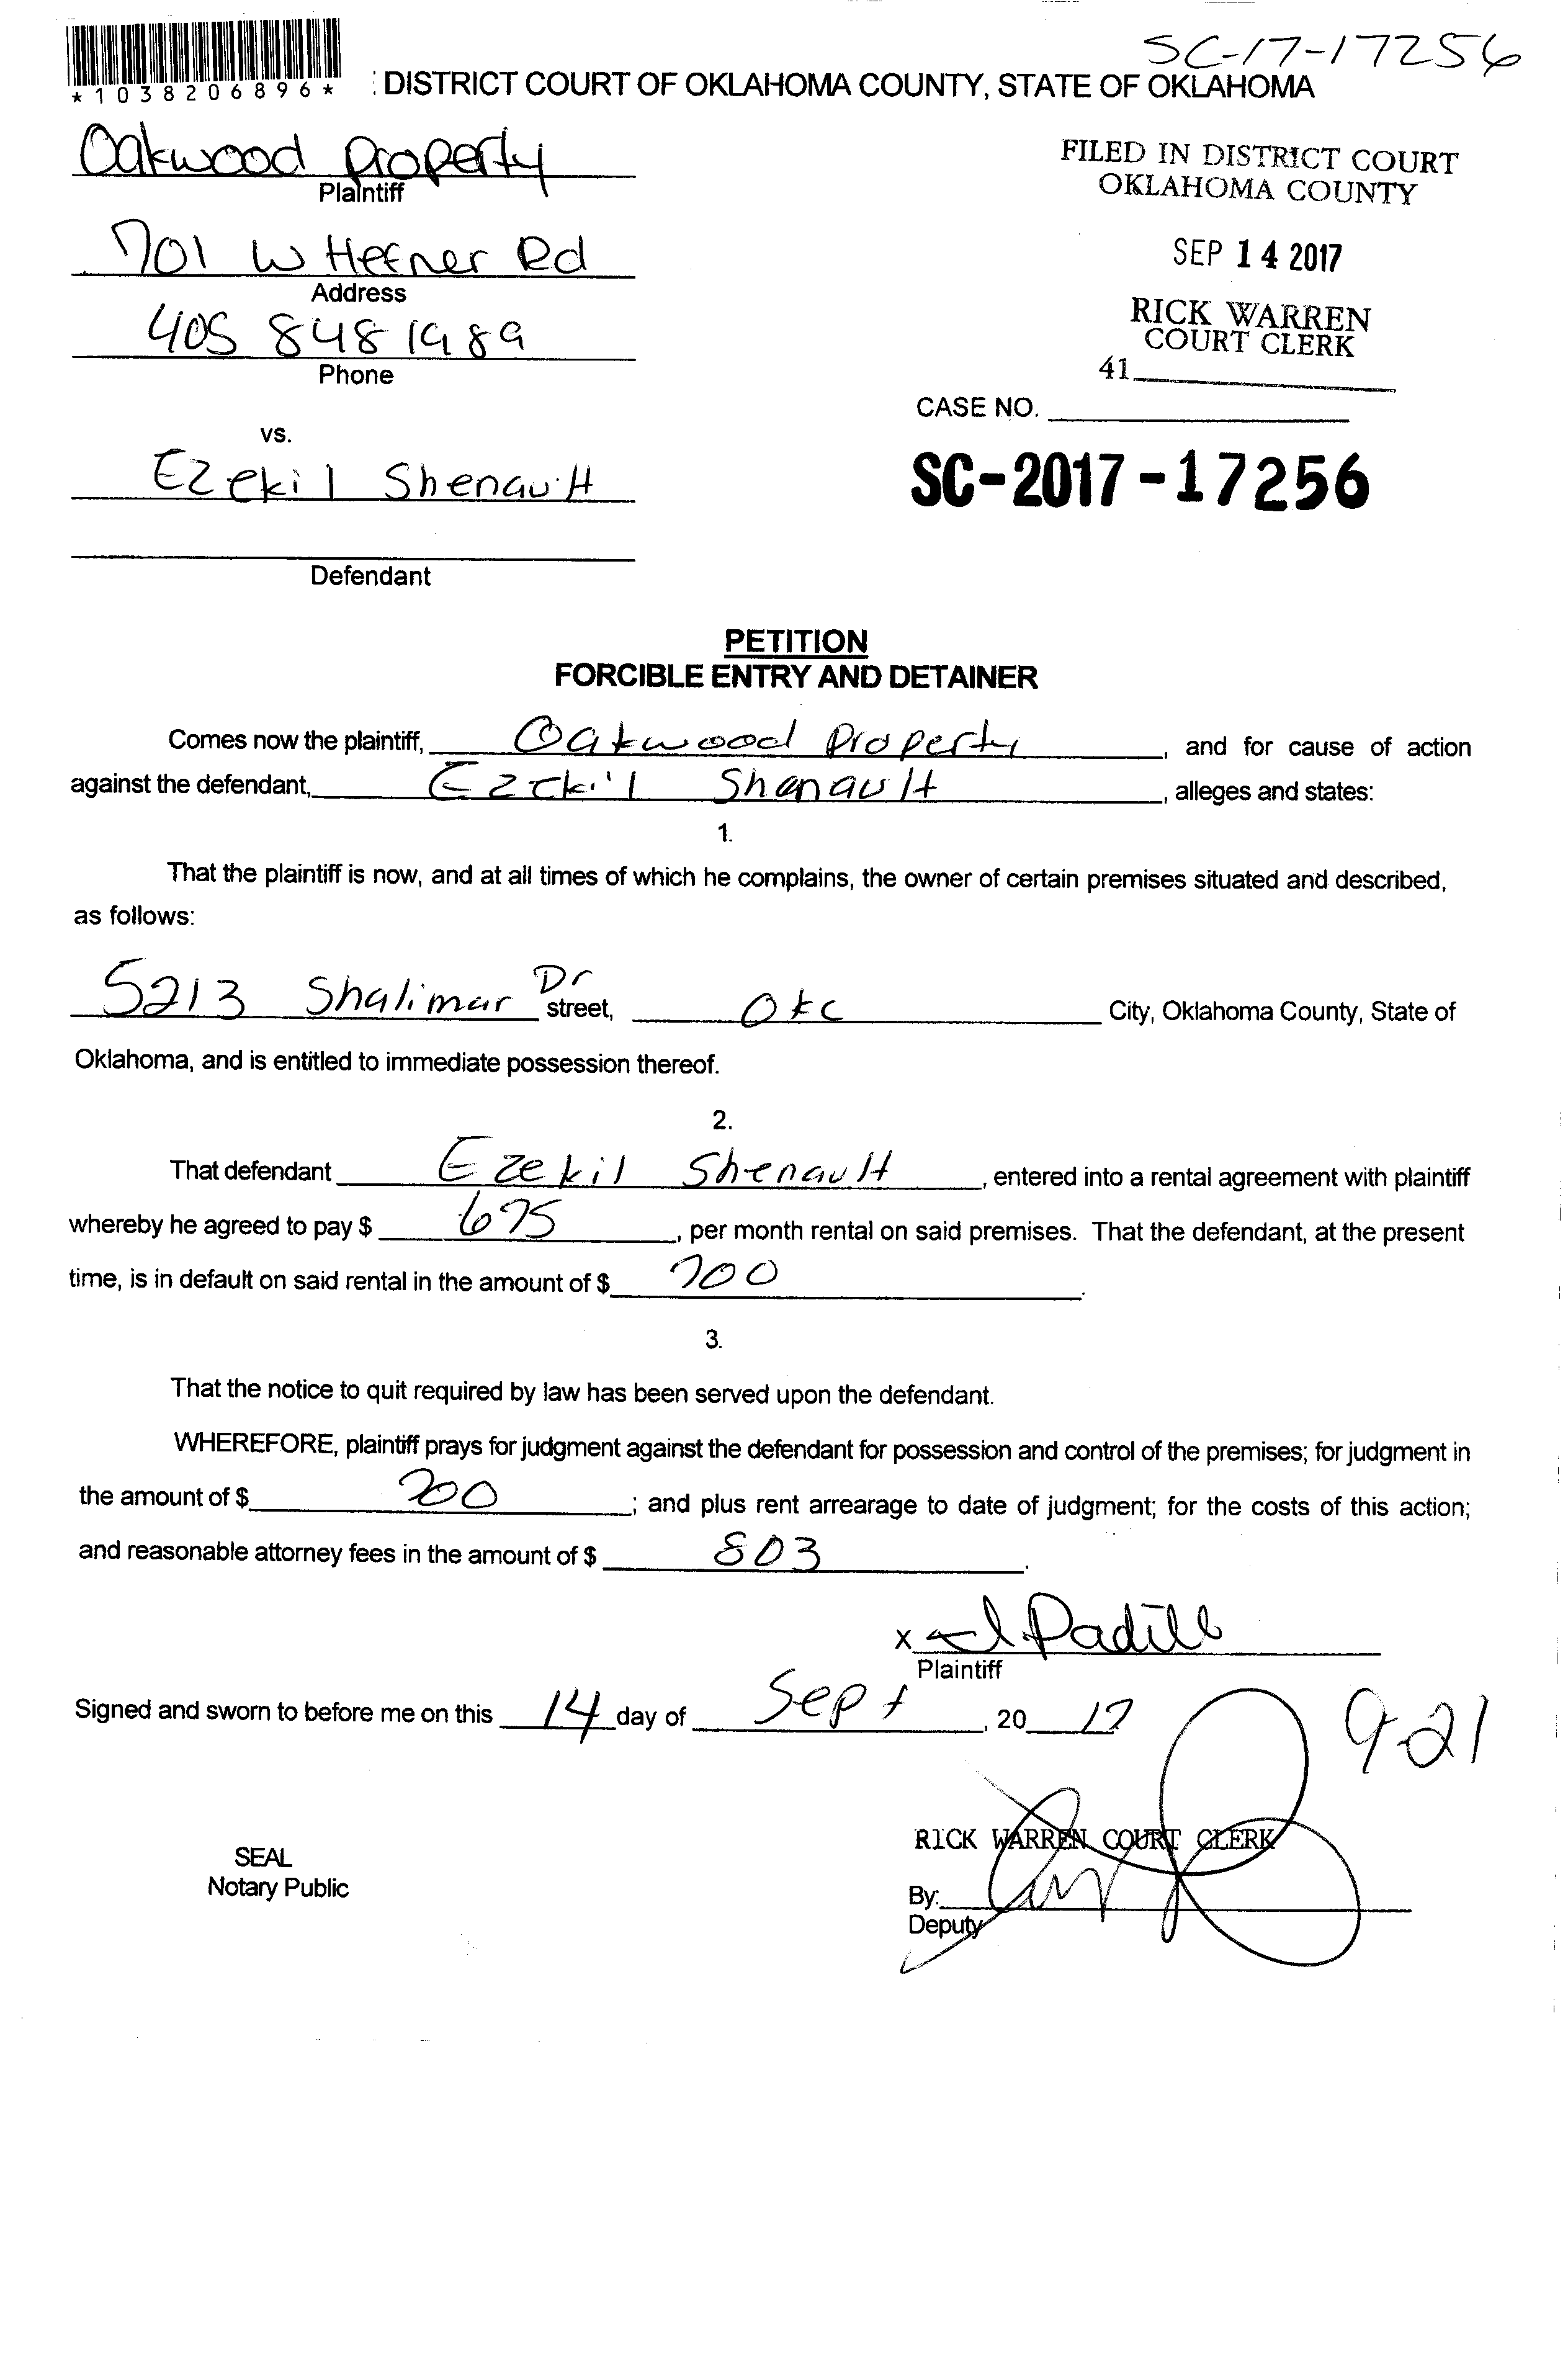 SC-17-17256
*1038206896*
: DISTRICT COURT OF OKLAHOMA COUNTY, STATE OF OKLAHOMA
Oakwood Property
Plaintiff
FILED IN DISTRICT COURT
OKLAHOMA COUNTY
701 W Hefner Rd
Address
SEP 14 2017
405 848 1989
Phone
RICK WARREN
COURT CLERK
41
CASE NO.
vs.
Ezekil Shenault
SC-2017-17256
Defendant
PETITION
FORCIBLE ENTRY AND DETAINER
Comes now the plaintiff, Oakwood Property, and for cause of action
against the defendant, Ezekil Shenault, alleges and states:
1.
That the plaintiff is now, and at all times of which he complains, the owner of certain premises situated and described,
as follows:
5213 Shalimar Dr street, OKC City, Oklahoma County, State of
Oklahoma, and is entitled to immediate possession thereof.
2.
That defendant Ezekil Shenault, entered into a rental agreement with plaintiff
whereby he agreed to pay $ 675, per month rental on said premises. That the defendant, at the present
time, is in default on said rental in the amount of $ 700.
3.
That the notice to quit required by law has been served upon the defendant.
WHEREFORE, plaintiff prays for judgment against the defendant for possession and control of the premises; for judgment in
the amount of $ 700; and plus rent arrearage to date of judgment; for the costs of this action;
and reasonable attorney fees in the amount of $ 803.
x Padilla
Plaintiff
Signed and sworn to before me on this 14 day of Sept, 20 17
9-21
RICK WARREN COURT CLERK
SEAL
Notary Public
By:
Deputy